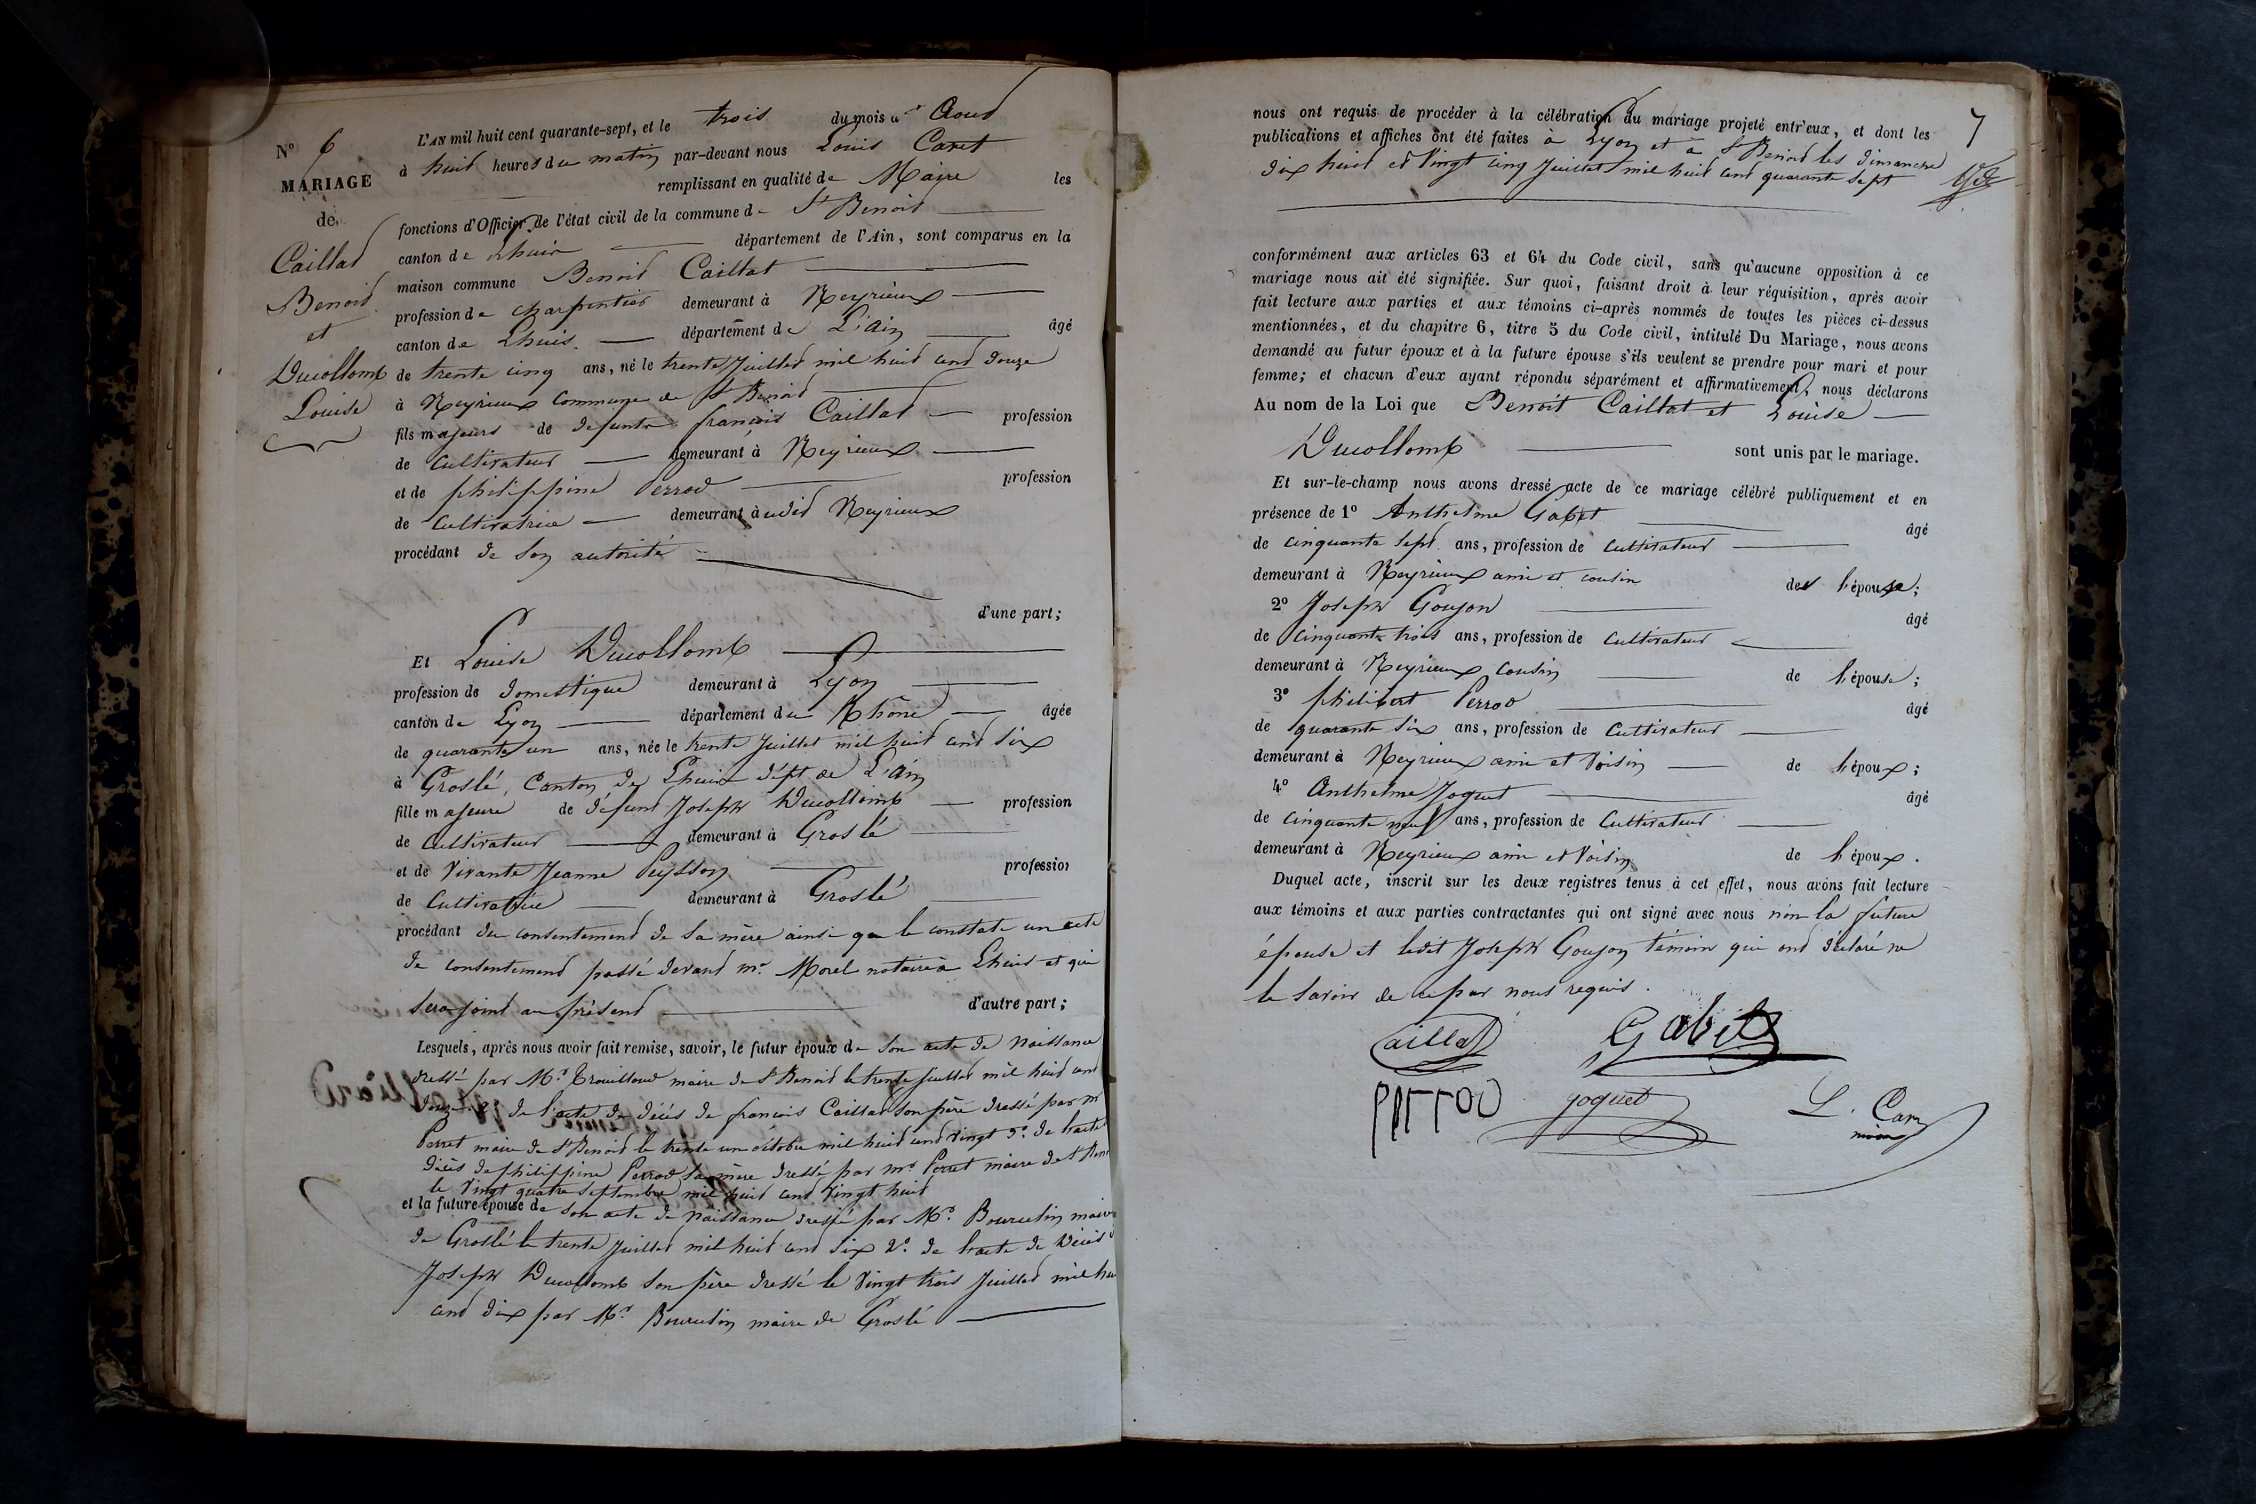 N° 6
MARIAGE
de
Caillat
Benoit
et
Ducollomb
Louise
L'AN mil huit cent quarante-sept, et le trois du mois d' Aout
à huit heures du matin par-devant nous Louis Caret
remplissant en qualité de Maire les
fonctions d'Officier de l'état civil de la commune de St Benoit
canton de Lhuis département de l'Ain, sont comparus en la
maison commune Benoit Caillat
profession de charpentier demeurant à Neyrieux
canton de Lhuis département de L'ain âgé
de trente cinq ans, né le trente Juillet mil huit cent douze
à Neyrieux commune de St Benoit
fils majeur de defunts françois Caillat profession
de Cultivateur demeurant à Neyrieux
et de philippine Perrod profession
de Cultivatrice demeurant à udit Neyrieux
procédant de son autorité
d'une part;
Et Louise Ducollomb
profession de domestique demeurant à Lyon
canton de Lyon département du Rhône âgée
de quarante un ans, née le trente Juillet mil huit cent six
à Groslé, Canton de Lhuis dépt de L'ain
fille majeure de défunt Joseph Ducollomb profession
de Cultivateur demeurant à Groslé
et de vivante Jeanne Peysson profession
de Cultivatrice demeurant à Groslé
procédant du consentement de sa mère ainsi que le constate un acte
de consentement passé devant mr. Morel notaire à Lhuis et qui
sera joint au présent d'autre part;
Lesquels, après nous avoir fait remise, savoir, le futur époux de son acte de naissance
dressé par Mr. Trouilloud maire de St Benoit le trente Juillet mil huit cent
douze 2° de l'acte de décès de françois Caillat son père dressé par mr
Perret maire de St Benoit le trente un octobre mil huit cent vingt 3°. de l'acte
décès de philippine Perrod sa mère dressé par mr Perret maire de St Ben
le vingt quatre septembre mil huit cent vingt huit
et la future épouse de son acte de naissance dressé par Mr. Bourcelin maire
de Groslé le trente Juillet mil huit cent six 2°. de l'acte de Décès
Joseph Ducollomb son père dressé le vingt trois Juillet mil hu
cent dix par Mr. Bourcelin maire de Groslé
7
nous ont requis de procéder à la célébration du mariage projeté entr'eux, et dont les
publications et affiches ont été faites à Lyon et à St Benoit les dimanche
dix huit et Vingt cinq Juillet mil huit cent quarante sept
conformément aux articles 63 et 64 du Code civil, sans qu'aucune opposition à ce
mariage nous ait été signifiée. Sur quoi, faisant droit à leur réquisition, après avoir
fait lecture aux parties et aux témoins ci-après nommés de toutes les pièces ci-dessus
mentionnées, et du chapitre 6, titre 5 du Code civil, intitulé Du Mariage, nous avons
demandé au futur époux et à la future épouse s'ils veulent se prendre pour mari et pour
femme; et chacun d'eux ayant répondu séparément et affirmativement, nous déclarons
Au nom de la Loi que Benoit Caillat et Louise
Ducollomb sont unis par le mariage.
Et sur-le-champ nous avons dressé acte de ce mariage célébré publiquement et en
présence de 1° Anthelme Gabet âgé
de cinquante sept ans, profession de Cultivateur
demeurant à Neyrieux ami et cousin de l'épouse;
2° Joseph Goujon âgé
de cinquante trois ans, profession de Cultivateur
demeurant à Neyrieux cousin de l'épouse;
3° philibert Perrod âgé
de quarante six ans, profession de Cultivateur
demeurant à Neyrieux ami et Voisin de l'époux;
4° Anthelme Joguet âgé
de cinquante neuf ans, profession de Cultivateur
demeurant à Neyrieux ami et Voisin de l'époux.
Duquel acte, inscrit sur les deux registres tenus à cet effet, nous avons fait lecture
aux témoins et aux parties contractantes qui ont signé avec nous non la future
épouse et ledit Joseph Goujon témoin qui ont déclaré ne
le savoir de ce par nous requis.
Caillat Gabet
Perrod Joguet L. Caret
maire